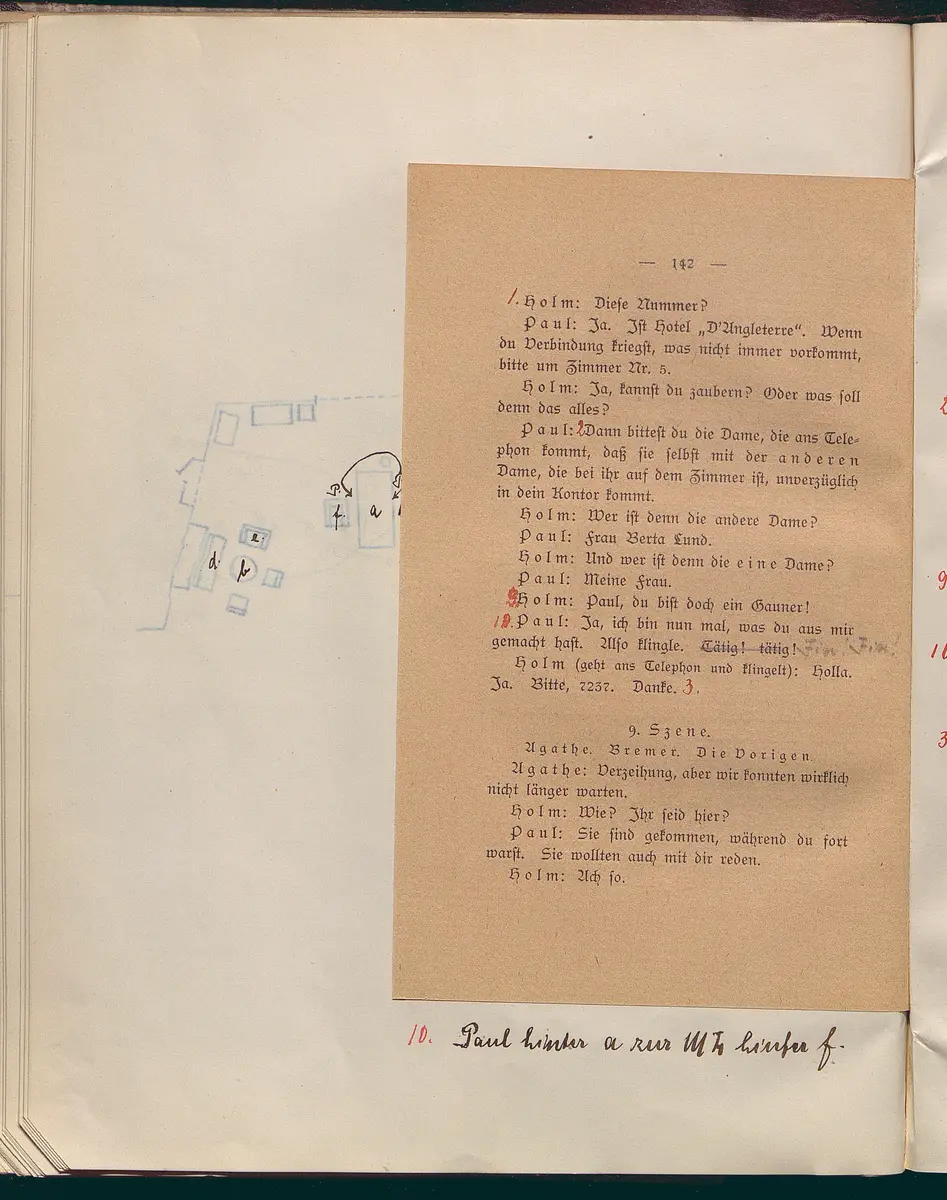 — 142 —
1. Holm: Diese Nummer?
Paul: Ja. Ist Hotel „D'Angleterre“. Wenn
du Verbindung kriegst, was nicht immer vorkommt,
bitte um Zimmer Nr. 5.
Holm: Ja, kannst du zaubern? Oder was soll
denn das alles?
Paul: 2 Dann bittest du die Dame, die ans Tele-
phon kommt, daß sie selbst mit der anderen
Dame, die bei ihr auf dem Zimmer ist, unverzüglich
in dein Kontor kommt.
Holm: Wer ist denn die andere Dame?
Paul: Frau Berta Lund.
Holm: Und wer ist denn die eine Dame?
Paul: Meine Frau.
9. Holm: Paul, du bist doch ein Gauner!
10. Paul: Ja, ich bin nun mal, was du aus mir
gemacht hast. Also klingle. Tätig! tätig!
Holm (geht ans Telephon und klingelt): Holla.
Ja. Bitte, 7237. Danke. 3.
9. Szene.
Agathe. Bremer. Die Vorigen.
Agathe: Verzeihung, aber wir konnten wirklich
nicht länger warten.
Holm: Wie? Ihr seid hier?
Paul: Sie sind gekommen, während du fort
warst. Sie wollten auch mit dir reden.
Holm: Ach so.
f. a
e.
d. b
10. Paul hinter a zur hinter f.
9
10
3